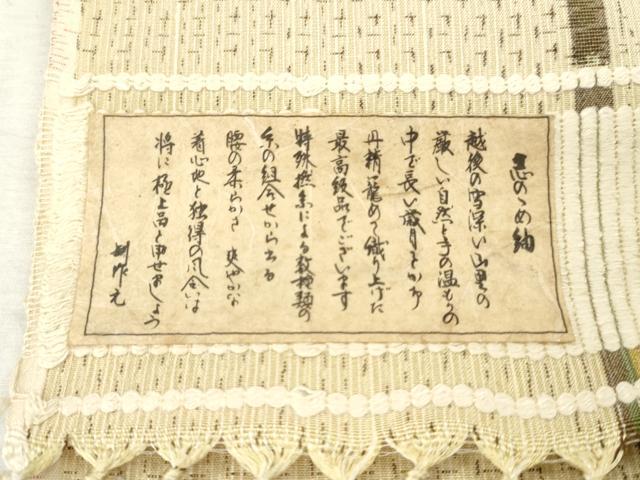 しのゝめ紬
越後の雪深い山里の
厳しい自然と手の温もりの
中で長い歳月をかけ
丹精籠めて織り上げた
最高級品でございます
特殊撚糸による数種類の
糸の組合せから出る
腰の柔らかさ 爽やかな
着心地と独得の風合いは
将に極上品と申せましょう
制作元